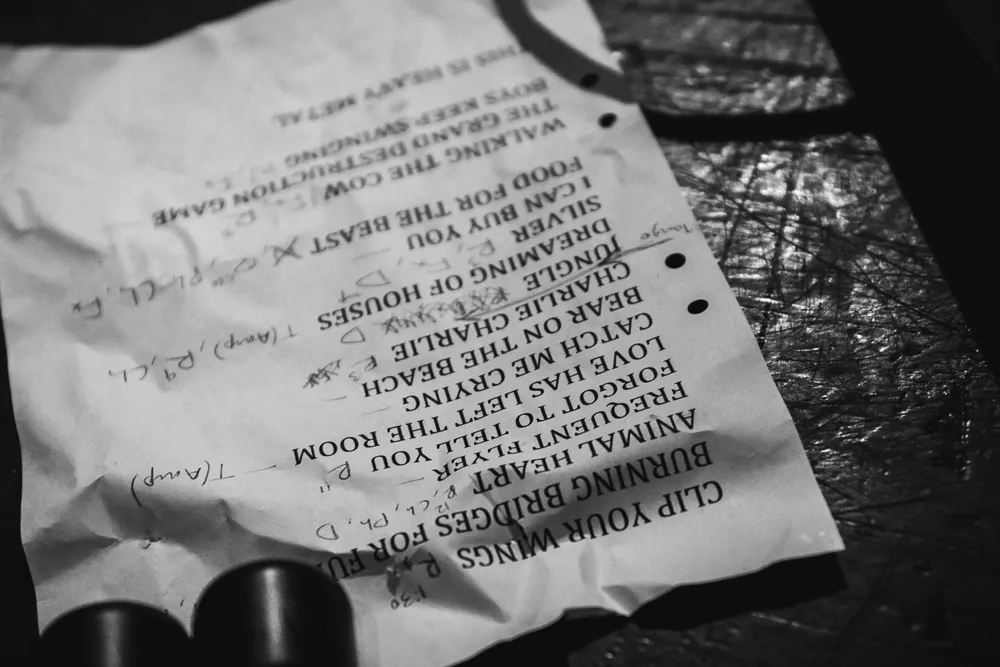 CLIP YOUR WINGS 1:30
BURNING BRIDGES FOR
ANIMAL HEART R12, Ch, Ph, D
FREQUENT FLYER –
FORGOT TO TELL YOU R11
LOVE HAS LEFT THE ROOM – T(Amp)
CATCH ME CRYING –
BEAR ON THE BEACH –
CHARLIE CHARLIE R3
Tango JUNGLE
DREAMING OF HOUSES T(Amp), R9, Ch
SILVER D
I CAN BUY YOU –
FOOD FOR THE BEAST Ph, Ch, Fx
WALKING THE COW
THE GRAND DESTRUCTION GAME
BOYS KEEP SWINGING
THIS IS HEAVY METAL